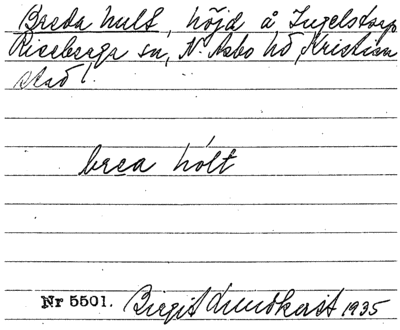 Breda hult, höjd å Ingelstorp
Riseberga sn, N. Åsbo hd, Kristian
stad l.
brea hólt
Nr 5501. Birgit Lundkvist 1935